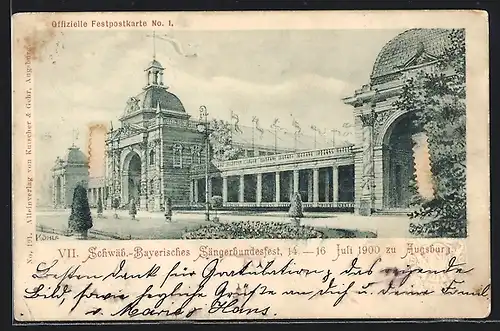 Offizielle Festpostkarte No. 1.
No. 191. Alleinverlag von & Gehr, Augsburg
VII. Schwäb.-Bayerisches Sängerbundesfest, 14.—16 Juli 1900 zu Augsburg.
Besten Dank für Gratulation, das reizende
Bild, sowie herzliche Grüße an dich u. deine Frau
v. Marie & Hans.